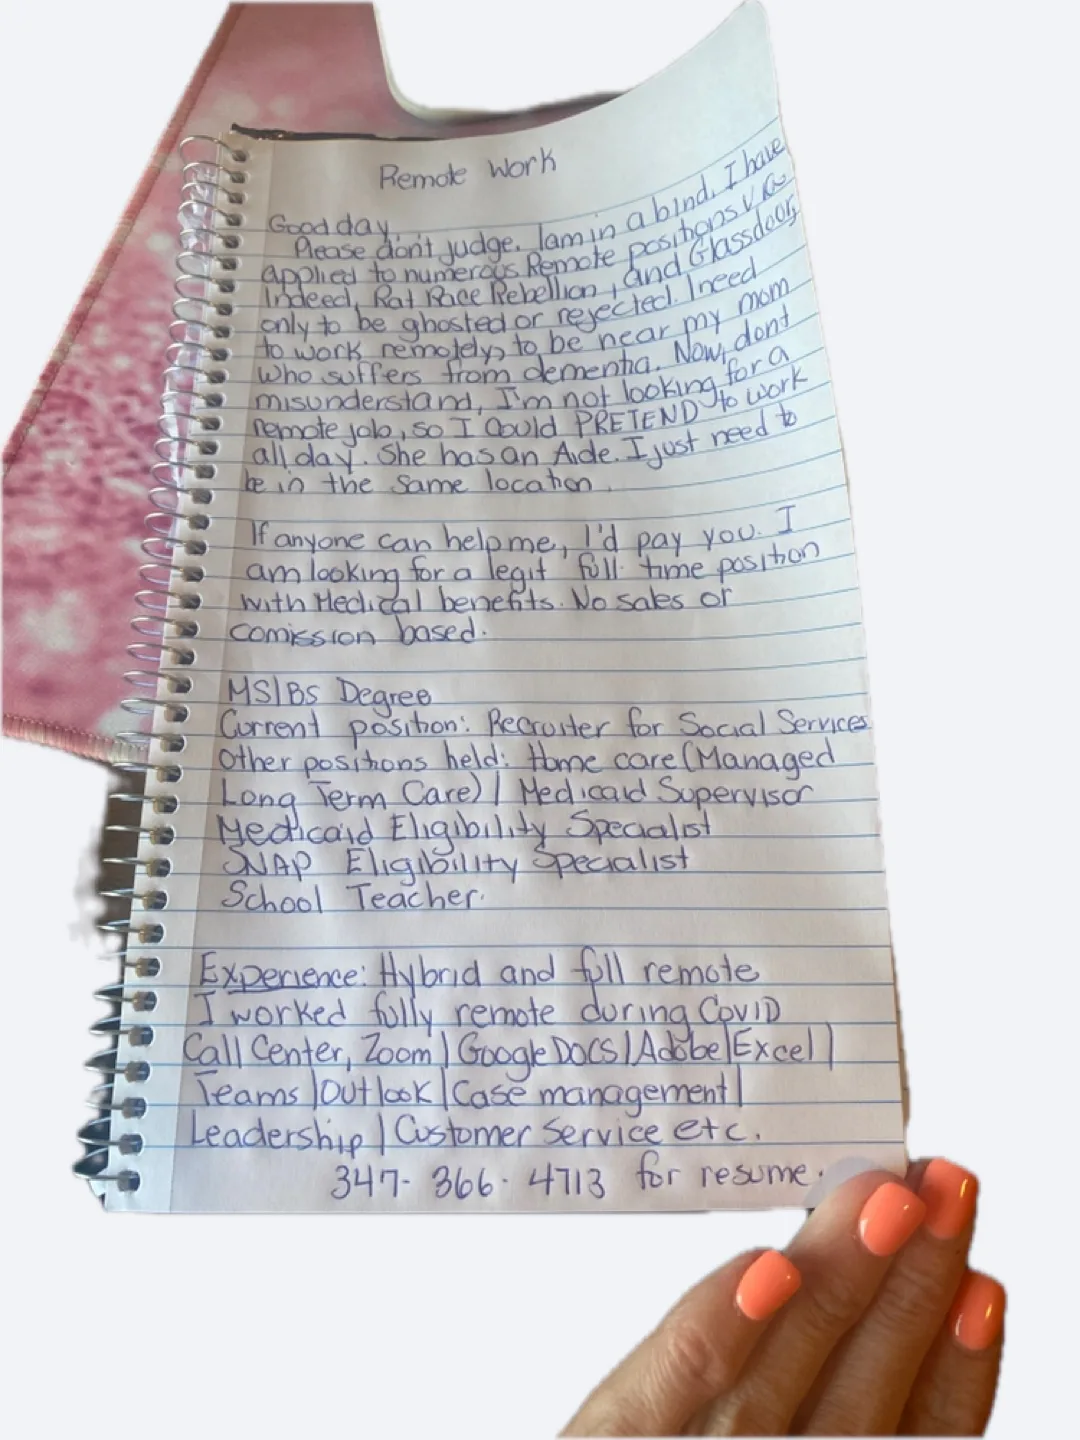 Remote Work
Good day,
Please don't judge. I am in a bind. I have
applied to numerous Remote positions via
Indeed, Rat Race Rebellion, and Glassdoor,
only to be ghosted or rejected. I need
to work remotely, to be near my mom
who suffers from dementia. Now, dont
misunderstand, I'm not looking for a
remote job, so I Could PRETEND to work
all day. She has an Aide. I just need to
be in the same location.
If anyone can help me, I'd pay you. I
am looking for a legit full time position
with Medical benefits. No sales or
comission based.
MS|BS Degree
Current position: Recruiter for Social Services
Other positions held: Home care (Managed
Long Term Care) | Medicaid Supervisor
Medicaid Eligibility Specialist
SNAP Eligibility Specialist
School Teacher.
Experience: Hybrid and full remote
I worked fully remote during CoviD
Call Center, Zoom | Google DOCS | Adobe | Excel |
Teams | Outlook | Case management |
Leadership | Customer Service etc.
347- 366- 4713 for resume.